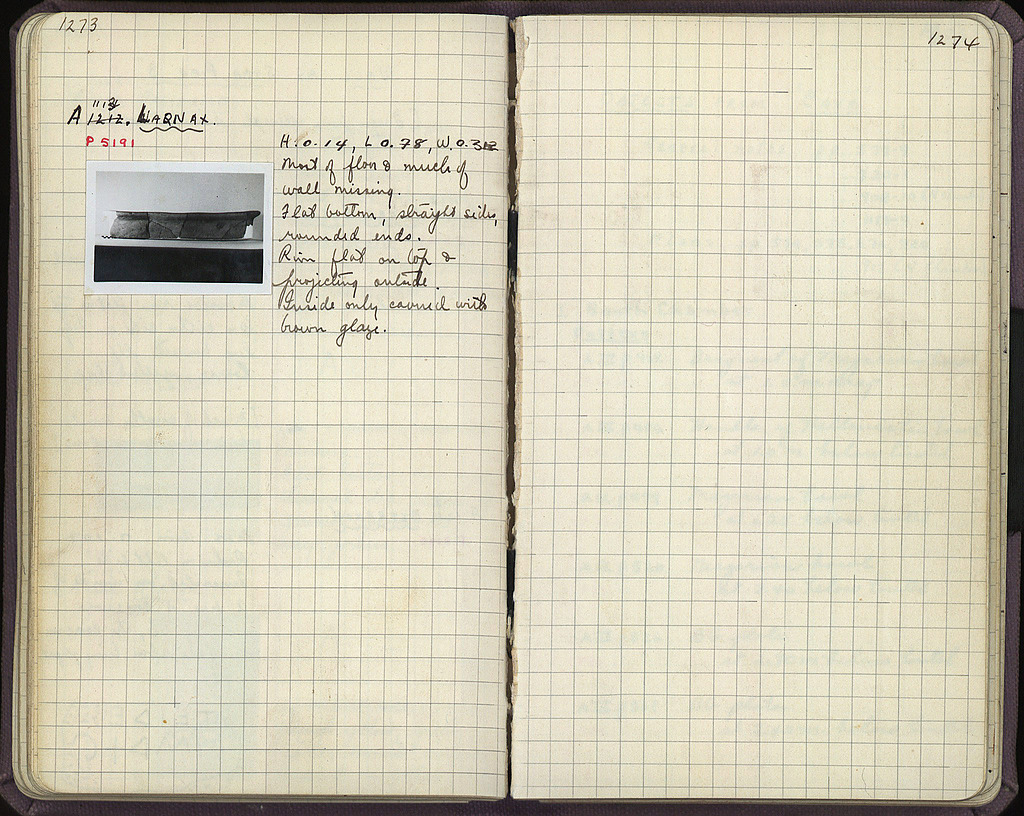 1273
1274
A 1212. LARNAX.
P 5191
H. 0.14, L 0.78, W. 0.32
Most of floor & much of
wall missing.
Flat bottom, straight sides,
rounded ends.
Rim flat on top &
projecting outside.
Inside only covered with
brown glaze.